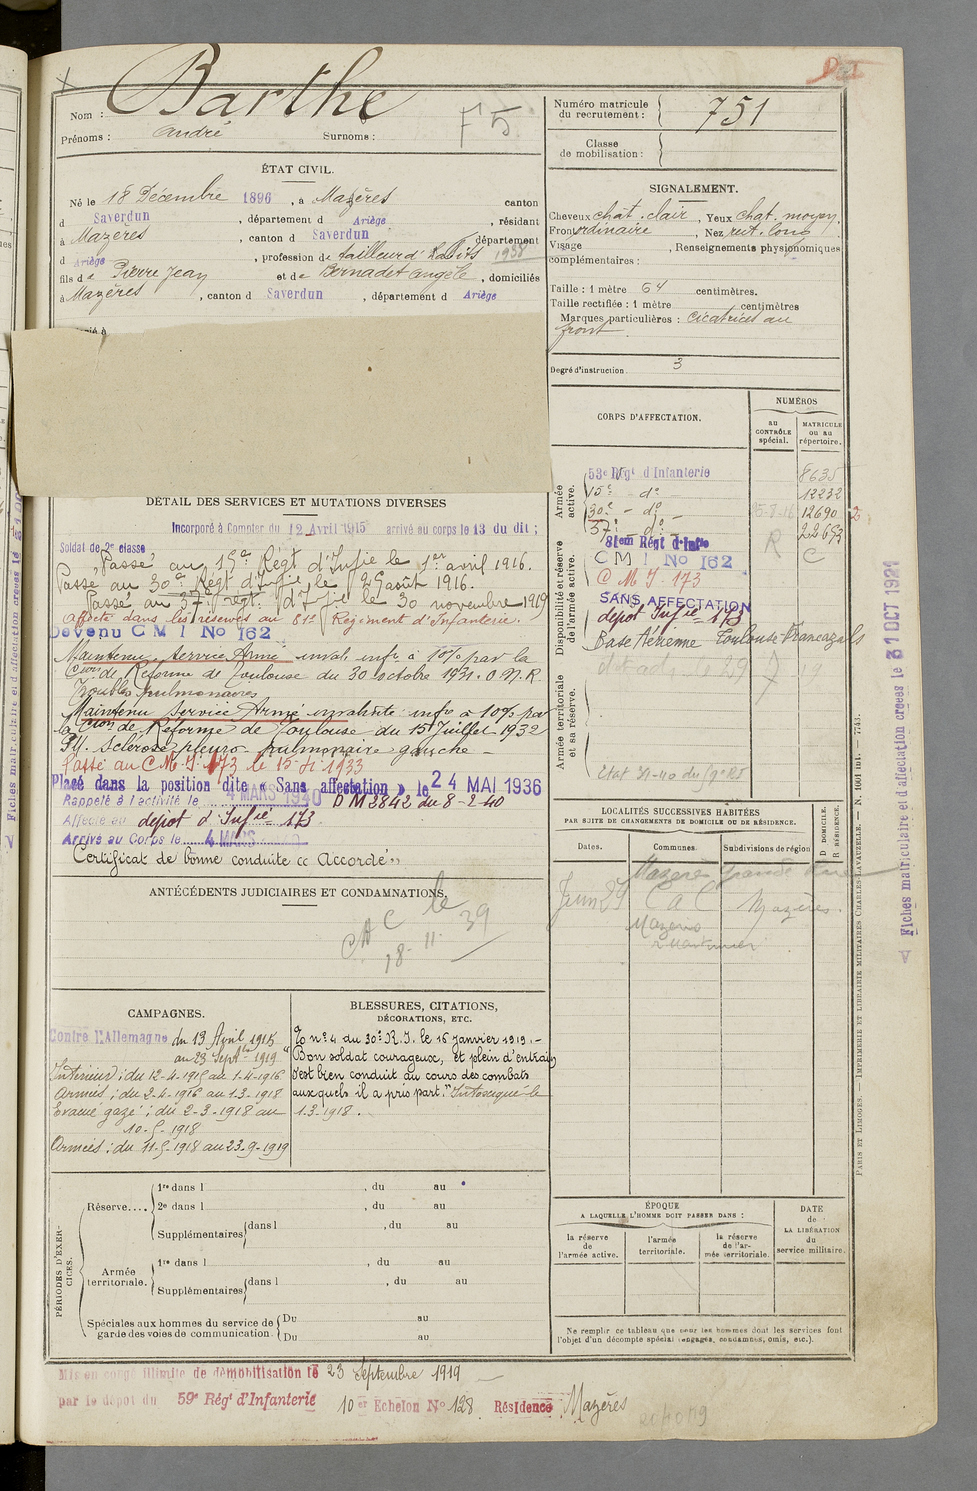 Nom : Barthe
Prénoms : André Surnoms :
F 5
ÉTAT CIVIL.
Né le 18 Décembre 1896, à Mazères canton
d Saverdun, département d Ariège, résidant
à Mazères, canton d Saverdun département
d Ariège, profession de tailleur d'habits 1938
fils de Pierre Jean et de Bernadet Angèle, domiciliés
à Mazères, canton d Saverdun, département d Ariège
DÉTAIL DES SERVICES ET MUTATIONS DIVERSES
Incorporé à Compter du 12 Avril 1915 arrivé au corps le 13 du dit ;
Soldat de 2e classe
Passé au 15e Régt d'Infie le 1er avril 1916.
Passé au 30e Régt d'Infie le 25 août 1916.
Passé au 37e régt d'Infie le 30 novembre 1919
affecté dans les réserves au 81e Régiment d'Infanterie.
Devenu C M I No 162
Maintenu service Armé inval. infre à 10% par la
Cion de Réforme de Toulouse du 30 octobre 1931. O.N.R.
Troubles pulmonaires
Maintenu Service Armé invalidité infre à 10% par
la Cion de Réforme de Toulouse du 15 Juillet 1932
P.V. Sclérose pleuro-pulmonaire gauche -
Passé au C.M.I. 173 le 15 1933
Placé dans la position dite « Sans affectation » le 24 MAI 1936
Rappelé à l'activité le 4 MARS 1940 D M 2842 du 8-2-40
Affecté au dépot d'Infie 173
Arrivé au Corps le 4 MARS
Certificat de bonne conduite « Accordé »
ANTÉCÉDENTS JUDICIAIRES ET CONDAMNATIONS.
le
18-11-39
CAMPAGNES.
Contre l'Allemagne du 13 Avril 1915
au 23 Septbre 1919
Intérieur : du 12-4-1915 au 1-4-1916
Armées : du 2-4-1916 au 1-3-1918
Evacué gazé : du 2-3-1918 au
10-5-1918
Armées : du 11-5-1918 au 23-9-1919
BLESSURES, CITATIONS,
DÉCORATIONS, ETC.
O n° 4 du 30e R.I. le 16 janvier 1919.-
"Bon soldat courageux, et plein d'entrain
s'est bien conduit au cours des combats
auxquels il a pris part." Intoxiqué le
1.3-1918.
PÉRIODES D'EXERCICES.
Réserve....
1re dans l , du au
2e dans l , du au
Supplémentaires dans l , du au
Armée territoriale.
1re dans l , du au
Supplémentaires dans l , du au
Spéciales aux hommes du service de garde des voies de communication
Du au
Du au
Mis en congé illimité de démobilisation le 23 Septembre 1919
par le dépot du 59e Régt d'Infanterie 10 er Echelon No 128 Résidence Mazères
Numéro matricule du recrutement : 751
Classe de mobilisation :
SIGNALEMENT.
Cheveux chât. clair, Yeux chat. moyen.
Front ordinaire, Nez rect. long
Visage , Renseignements physionomiques
complémentaires :
Taille : 1 mètre 64 centimètres.
Taille rectifiée : 1 mètre centimètres
Marques particulières : cicatrices au
front
Degré d'instruction. 3
CORPS D'AFFECTATION.
NUMÉROS
au CONTRÔLE spécial.
MATRICULE ou au répertoire.
Armée active.
53e Régt d'Infanterie 8635
15e - do - 12232
30e - do - 12690
37e - do - 22653
Disponibilité et réserve de l'armée active.
81em Régt d'Infie R C
C M I No 162
C M I - 173
SANS AFFECTATION
dépot Infie 173
Base Aérienne Toulouse Francazals
Armée territoriale et sa réserve.
LOCALITÉS SUCCESSIVES HABITÉES
PAR SUITE DE CHANGEMENTS DE DOMICILE OU DE RÉSIDENCE.
Dates. Communes. Subdivisions de région
D DOMICILE.
R RÉSIDENCE.
Mazères grande
Juin 29 C a C Mazères.
Mazères
ÉPOQUE
A LAQUELLE L'HOMME DOIT PASSER DANS :
la réserve de l'armée active.
l'armée territoriale.
la réserve de l'armée territoriale.
DATE de LA LIBÉRATION du service militaire.
Ne remplir ce tableau que pour les hommes dont les services font
l'objet d'un décompte spécial (engagés, condamnés, omis, etc.).
PARIS ET LIMOGES. — IMPRIMERIE ET LIBRAIRIE MILITAIRES CHARLES-LAVAUZELLE. — N. 1001 int. — 7743.
V Fiches matriculaire et d'affectation créées le 31 OCT 1921
V Fiches matriculaire et d'affectation créées le